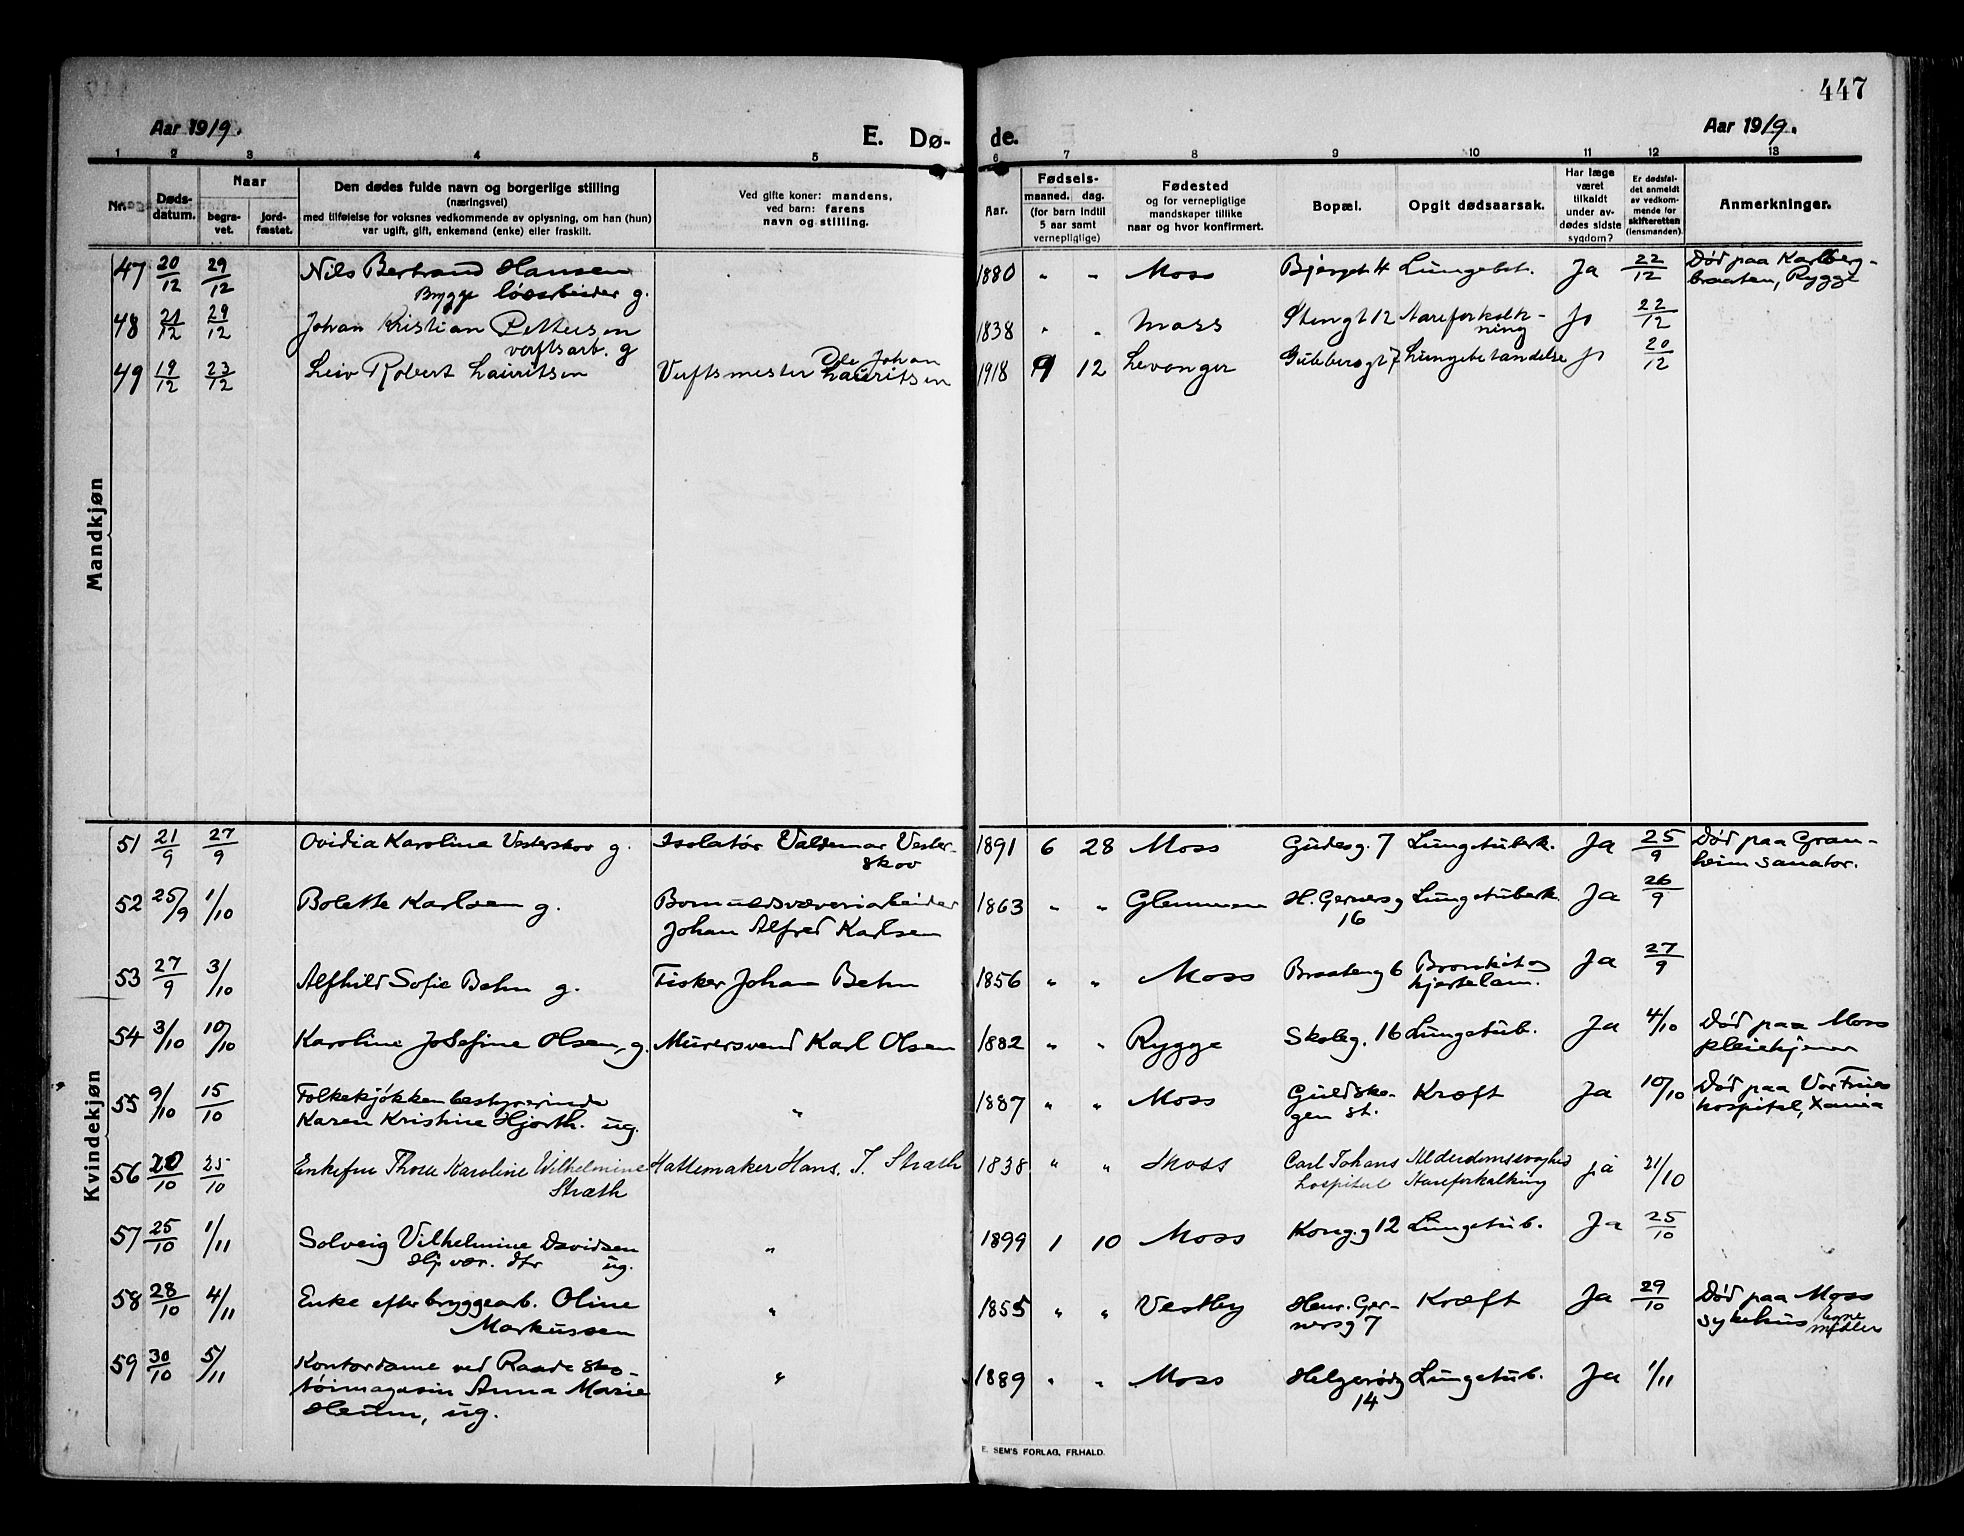 447
Aar 1919.
E. Dø-
de.
Aar 1919.
1 2 3 4 5 6 7 8 9 10 11 12 13
Nr.
Døds-
datum.
Naar
begra-
vet.
jord-
fæstet.
Den dødes fulde navn og borgerlige stilling
(næringsvei)
med tilføielse for voksnes vedkommende av oplysning, om han (hun)
var ugift, gift, enkemand (enke) eller fraskilt.
Ved gifte koner: mandens,
ved barn: farens
navn og stilling.
Aar.
Fødsels-
maaned. dag.
(for barn indtil
5 aar samt
vernepligtige)
Fødested
og for vernepligtige
mandskaper tillike
naar og hvor konfirmert.
Bopæl.
Opgit dødsaarsak.
Har læge
været
tilkaldt
under av-
dødes sidste
sygdom?
Er dødsfal-
det anmeldt
av vedkom-
mende for
skifteretten
(lensmanden).
Anmerkninger.
Mandkjøn
47 20/12 29/12 Nils Bertrand Hansen 1880 " " Moss Bjerget 4 Lungebet. Ja 22/12 Død paa Karlberg-
Brygge løsarbeider g. braaten, Rygge
48 21/12 29/12 Johan Kristian Pettersen 1838 " " Moss Stengt 12 Aareforkalk- Ja 22/12
verftsarb. g ning
49 19/12 23/12 Leiv Robert Lauritsen Verftsmester Ole Johan 1918 9 12 Levanger 7 Lungebetændelse Ja 20/12
Lauritsen
Kvindekjøn
51 21/9 27/9 Ovidia Karoline Vesterskov g. Isolatør Valdemar Vester- 1891 6 28 Moss Gudesg. 7 Lungetuberk. Ja 25/9 Død paa Gran-
skov heim sanator.
52 25/9 1/10 Bolette Karlsen g. Bomuldsvæveriarbeider 1863 " " Glemmen H. Gerners g Lungetuberk. Ja 26/9
Johan Alfred Karlsen 16
53 27/9 3/10 Alfhild Sofie Behn g. Fisker Johan Behn 1856 " " Moss Braateng 6 Bronkit og Ja 27/9
hjertelam.
54 3/10 10/10 Karoline Josefine Olsen, g. Murersvend Karl Olsen 1882 " " Rygge Skoleg. 16 Lungetub. Ja 4/10 Død paa Moss
pleiehjem
55 9/10 15/10 Folkekjøkkenbestyrerinde " 1887 " " Moss Guldsko- Kræft Ja 10/10 Død paa Vor Frues
Karen Kristine Hjorth. ug. gen st. hospital, Xania
56 20/10 25/10 Enkefru Thora Karoline Wilhelmine Hattemaker Hans. J. Stræth 1838 " " Moss Carl Johans Alderdomssvaghed ja 21/10
Stræth hospital Aareforkalkning
57 25/10 1/11 Solveig Vilhelmine Davidsen " 1899 1 10 Moss Kong. g 12 Lungetub. Ja 25/10
Hj. vær. dtr ug.
58 28/10 4/11 Enke efter bryggearb. Oline " 1855 " " Vestby Henr. Ger- Kræft Ja 29/10 Død paa Moss
Markussen nersg 7 sykehus egne midler
59 30/10 5/11 Kontordame ved Raade sko- " 1889 " " Moss Helgerødg Lungetub. Ja 1/11
tøimagasin Anna Marie 14
Heum, ug.
E. SEM'S FORLAG, FR.HALD.